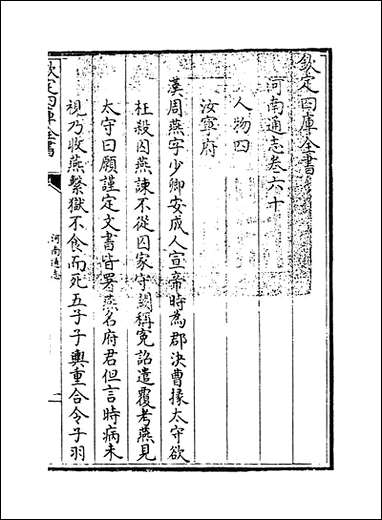 欽定四庫全書
河南通志卷六十
人物四
汝寧府
漢周燕字少卿安成人宣帝時為郡決曹掾太守欲
枉殺囚燕諫不從囚家守闕稱寃詔遣覆考燕見
太守曰願謹定文書皆署燕名府君但言時病未
視乃收燕繫獄不食而死五子子輿重合令子羽
欽定四庫全書
河南通志
一